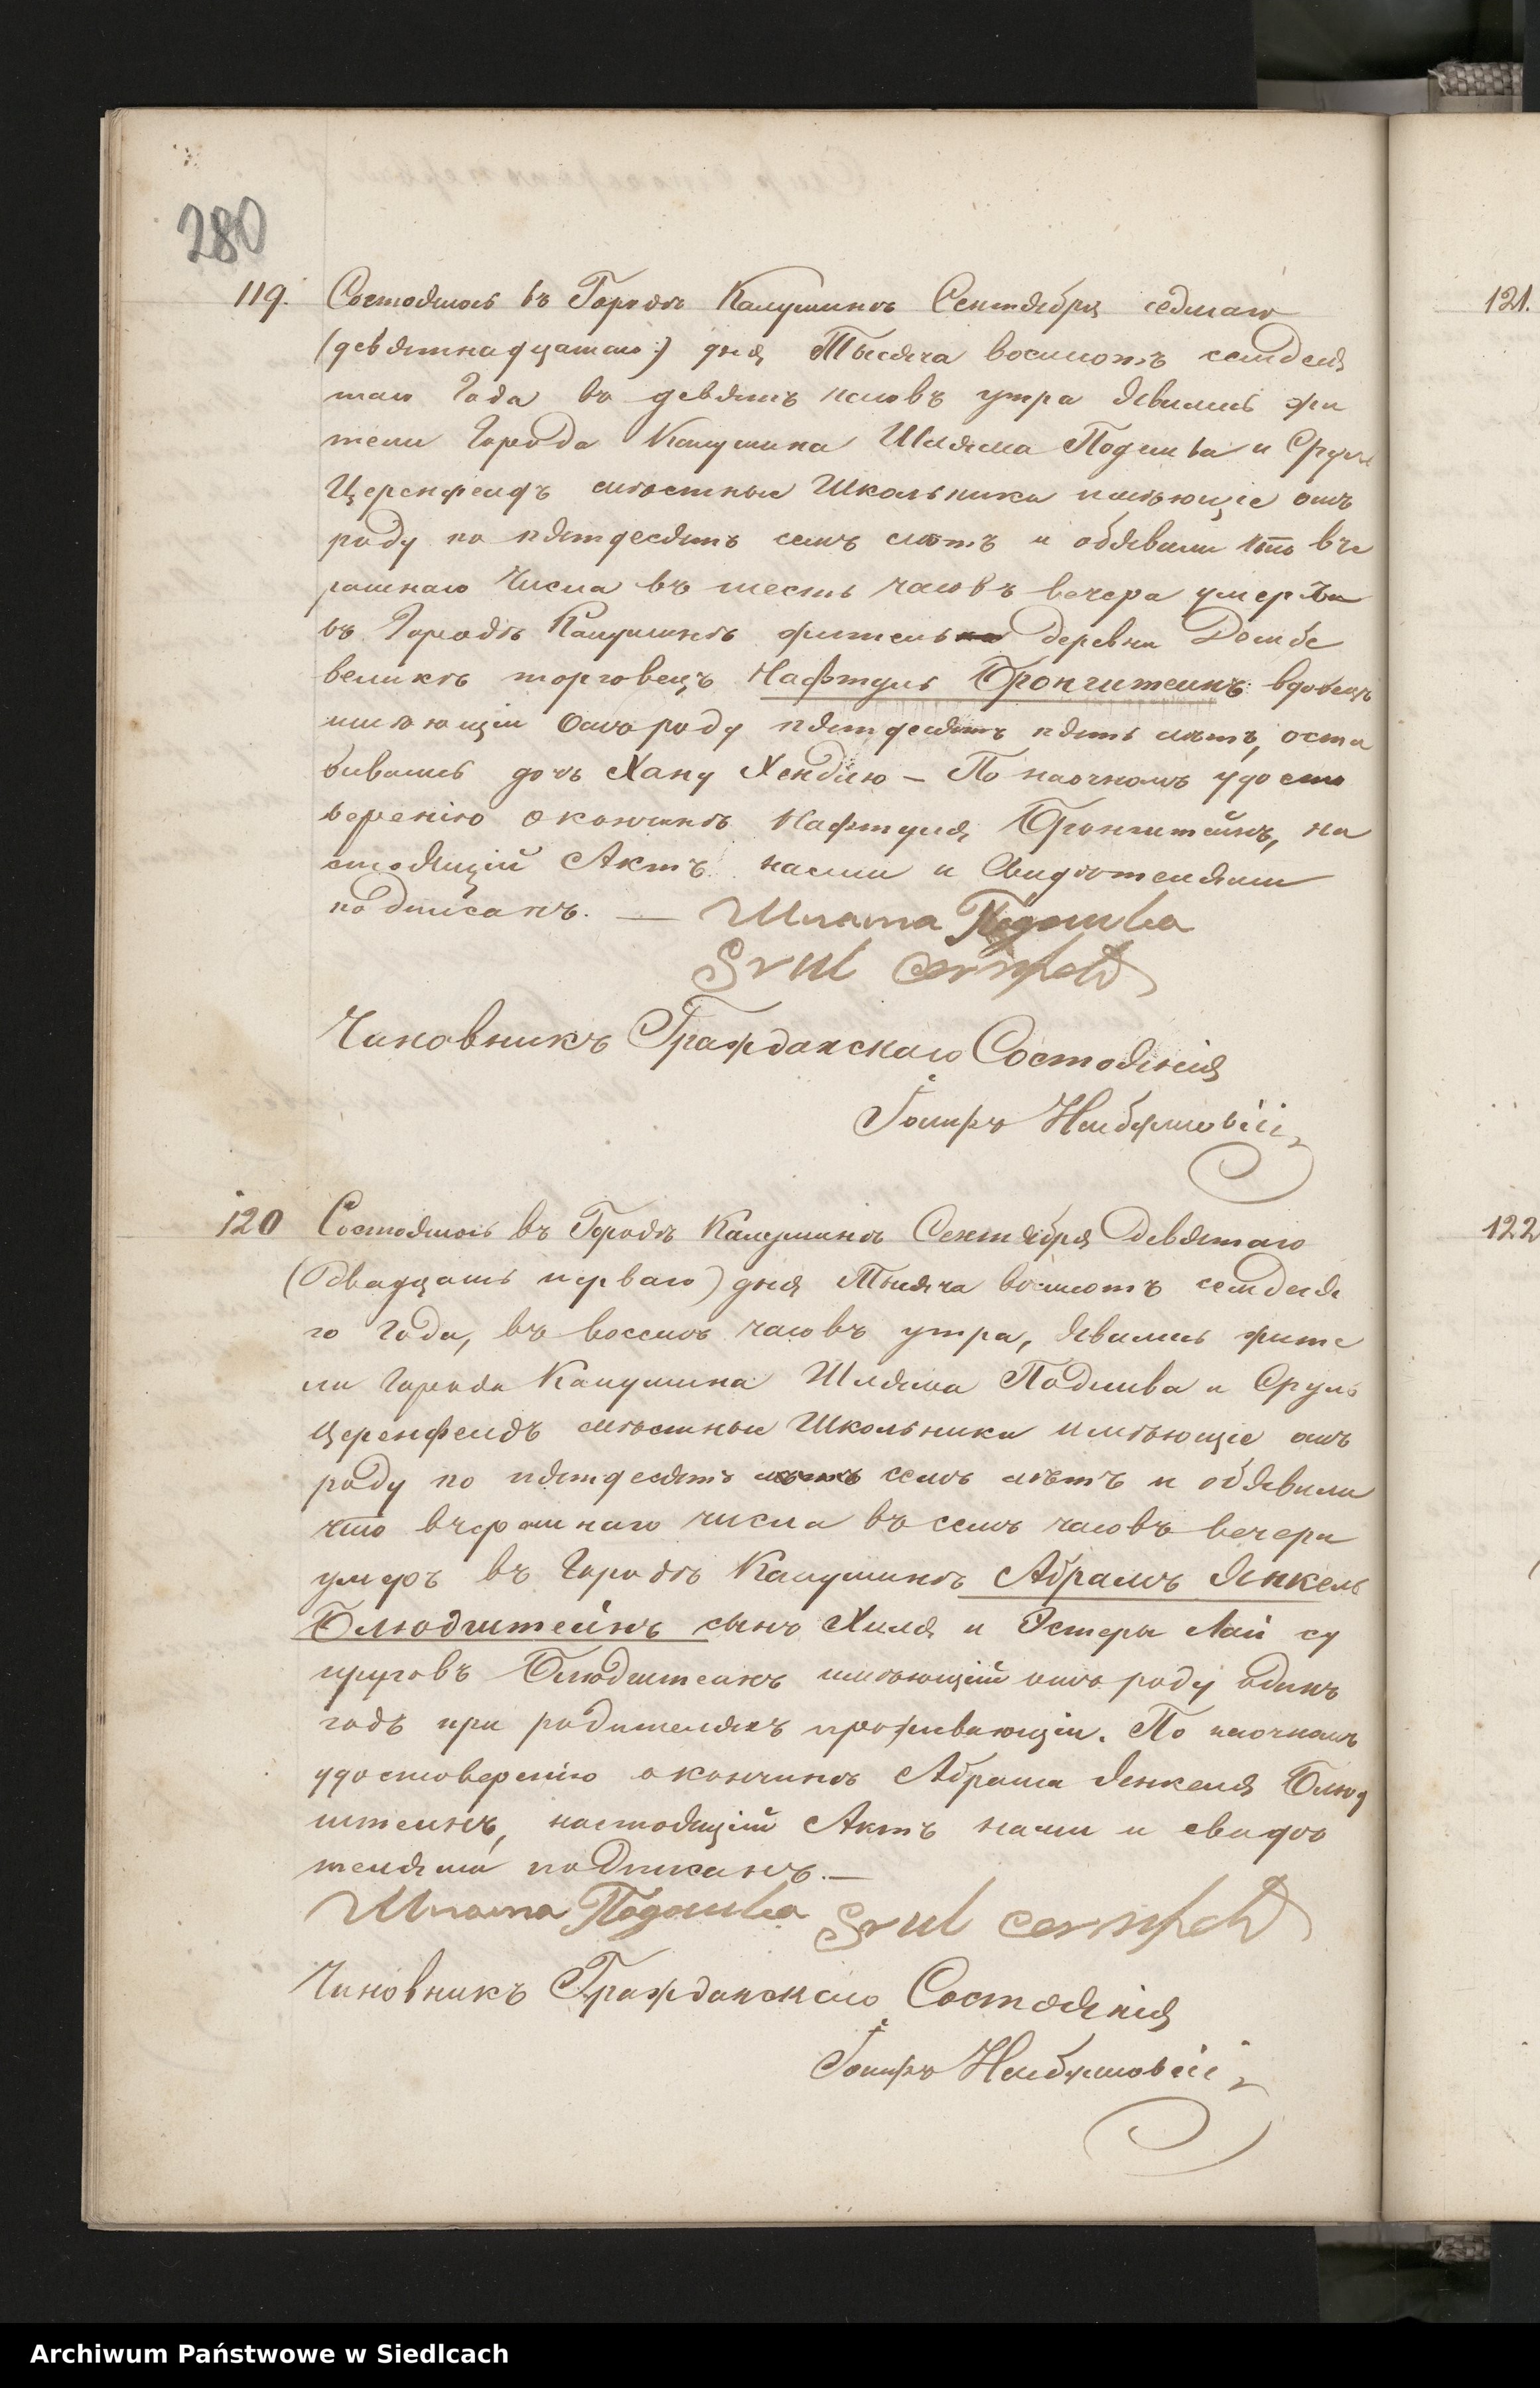 280
119. Состоялось въ Городѣ Калушинѣ Сентября седмаго
(девятнадцатаго) дня Тысяча восмотъ семдеся
таго Года въ девять часовъ утра явились жи
тели Города Калушина Шляма Подшва и Сруль
Церенфелдъ мѣстные Школьники имѣющіе отъ
роду по пятдесятъ семъ лѣтъ и обявили что вче
рашнаго Числа въ шесть часовъ вечера умеръ
въ Городѣ Калушинѣ житель деревни Домбе
великѣ торговецъ Нафтуль Бронштеинъ вдовецъ
имѣющіи отъ роду пятдесятъ пять лѣтъ, оста
вивашь дочь Хану Хендлю — По наочномъ удосто
веренію окончинѣ Нафтуля Бронштейнъ, на
стоящій Актъ нами и Свидѣтелями
подписанъ. — Шлама Подошва
Srul cernfeld
Чиновникъ Гражданскаго Состоянія
120 Состоялось въ Городѣ Калушинѣ Сентября Девятаго
(Двадцать перваго) дня Тысяча восмотъ семдеся
го Года, въ восемъ часовъ утра, явились жите
ли Города Калушина Шляма Подшва и Сруль
Церенфелдъ мѣстные Школьники имѣющіе отъ
роду по пятдесятъ семъ лѣтъ и обявили
что вчерашнаго числа въ семъ часовъ вечера
умеръ въ Городѣ Калушинѣ Абрамъ Янкель
Блюдштейнъ сынъ Хиля и Эстеры Лаи су
пруговъ Блюдштеинъ имѣющій отъ роду одинъ
годъ при родителяхъ проживающіи. По наочномъ
удостоверенію окончинѣ Абрама Янкеля Блюд
штеинъ, настоящій Актъ нами и свидѣ
телями подписанъ. —
Шлама Подошва Srul cernfeld
Чиновникъ Гражданскаго Состоянія
121.
122
Archiwum Państwowe w Siedlcach